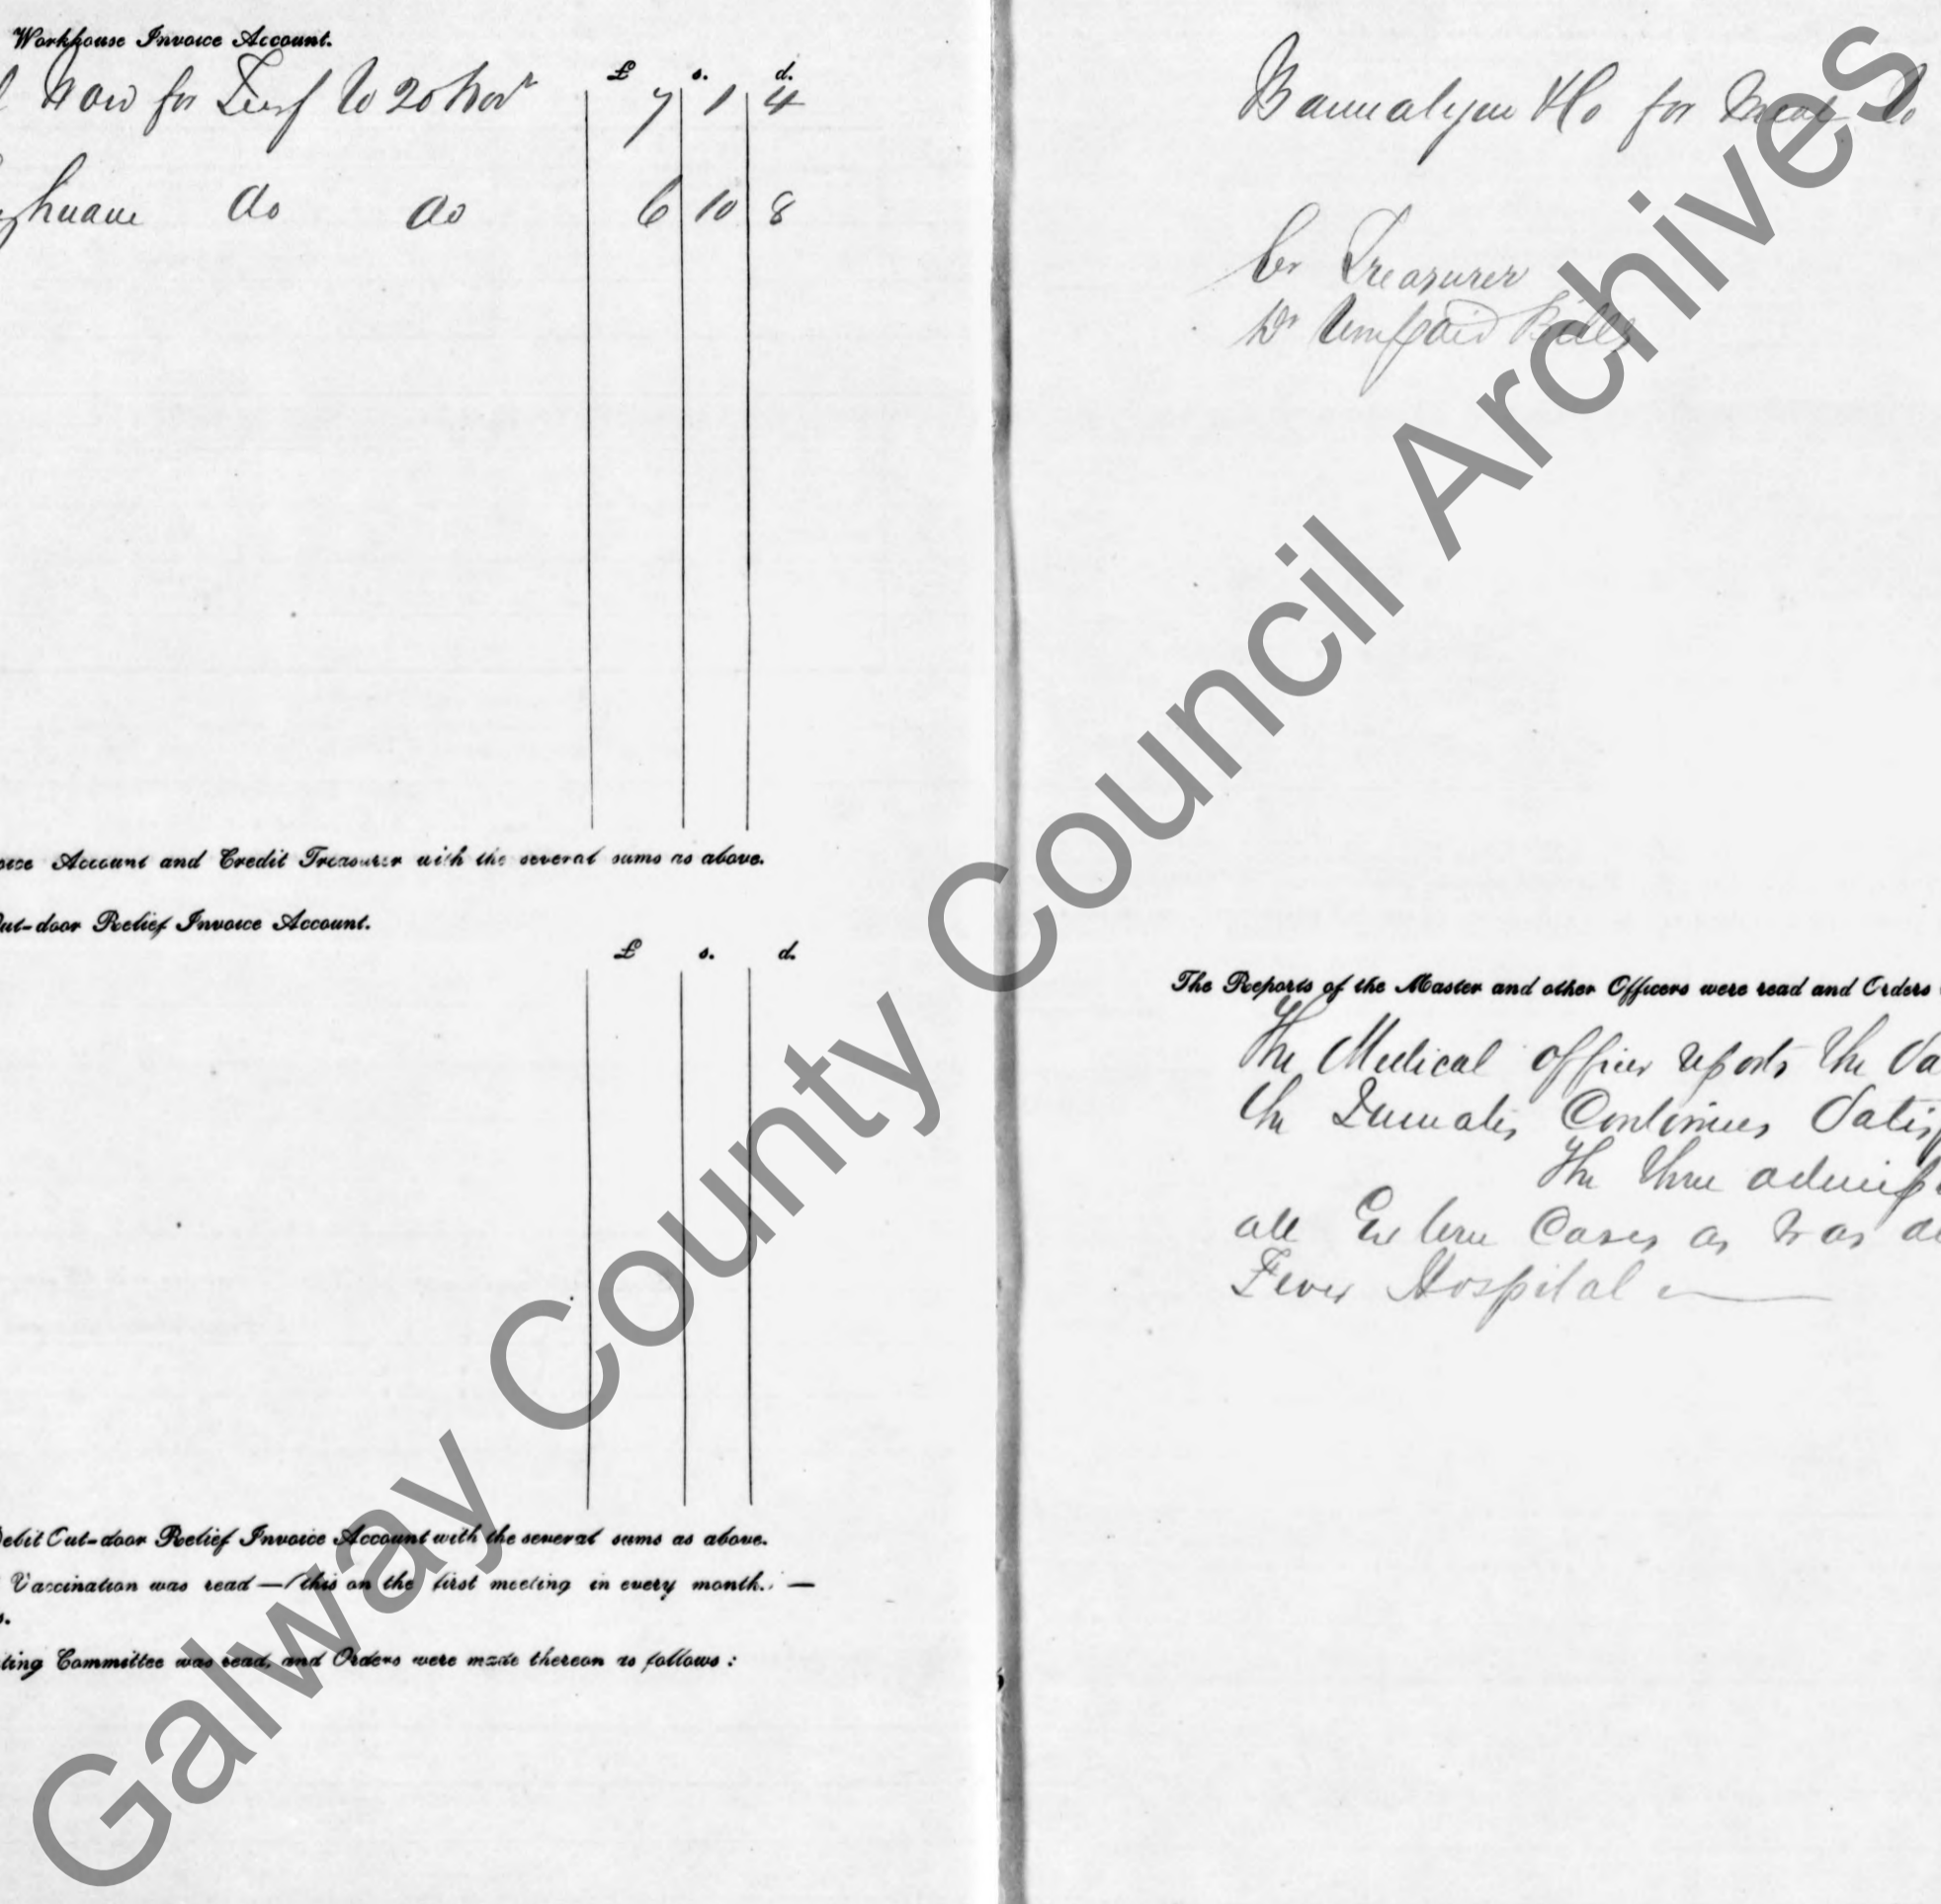 Workhouse Invoice Account.
£ s. d.
for Turf to 20 Novr 7 1 4
do do 6 10 8
Account and Credit Treasurer with the several sums as above.
Out-door Relief Invoice Account.
£ s. d.
Debit Out-door Relief Invoice Account with the several sums as above.
Vaccination was read — (this on the first meeting in every month.) —
ting Committee was read, and Orders were made thereon as follows:
for Meal to
Cr Treasurer
Dr Unpaid Bills
The Reports of the Master and other Officers were read and Orders
The Medical officer reports the Sa
the Inmates Continues Satisf
The three admiss
all Extern Cases as was
Fever Hospital
Galway County Council Archives